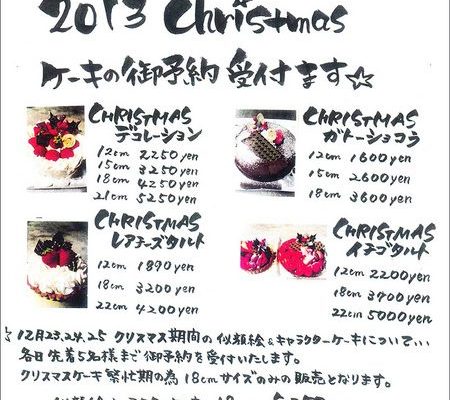 2013 Christmas
ケーキの御予約 受付ます☆
CHRISTMAS
デコレーション
12cm 2250yen
15cm 3250yen
18cm 4250yen
21cm 5250yen
CHRISTMAS
ガトーショコラ
12cm 1600yen
15cm 2600yen
18cm 3600yen
CHRISTMAS
レアチーズタルト
12cm 1890yen
18cm 3200yen
22cm 4200yen
CHRISTMAS
イチゴタルト
12cm 2200yen
18cm 3700yen
22cm 5000yen
☆12月23,24,25 クリスマス期間の似顔絵&キャラクターケーキについて…
各日先着5名様まで御予約を受付いたします。
クリスマスケーキ繁忙期の為 18cmサイズのみの販売となります。